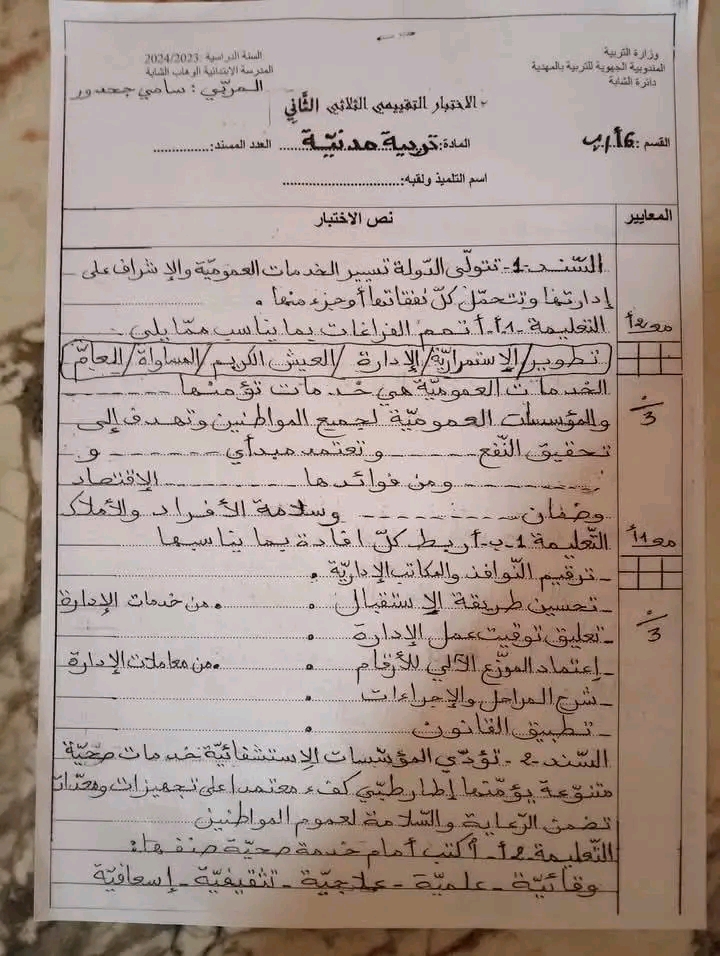 وزارة التربية
المندوبية الجهوية للتربية بالمهدية
دائرة الشابة
السنة الدراسية :2024/2023
المدرسة الابتدائية الوهاب الشابة
المربّي : سامي جحدور
الاختبار التقييمي الثلاثي الثّاني
القسم :6أ/ب المادة:تربية مدنيّة العدد المسند:............
اسم التلميذ ولقبه:............
المعايير نص الاختبار
السّند-1- تتولّى الدّولة تسيير الخدمات العموميّة والإشراف على
إدارتها وتتحمّل كلّ نفقاتها أو جزء منها .
مع2أ التعليمة -1أ- أتمم الفراغات بما يناسب ممّا يلي
تطوير/الإستمراريّة/الإدارة/العيش الكريم/المساواة/العامّ
الخدمات العموميّة هي خدمات تؤمّنها ------
3 والمؤسسات العموميّة لجميع المواطنين وتهدف إلى
تحقيق النّفع ------ وتعتمد مبدأي ------ و
------ ومن فوائدها ------ الإقتصاد
وضمان ------ وسلامة الأفراد والأملاك
مع1أ التّعليمة 1-ب- أربط كلّ افادة بما يناسبها
- ترقيم النّوافذ والمكاتب الإداريّة .
- تحسين طريقة الإستقبال . .من خدمات الإدارة
3 - تعليق توقيت عمل الإدارة .
- إعتماد الموزّع الآلي للأرقام . .من معاملات الإدارة
- شرح المراحل والإجراءات .
- تطبيق القانون .
السّند -2- تؤدّي المؤسّسات الاستشفائيّة خدمات صحيّة
متنوّعة يؤمّنها إطار طبّي كفء معتمدا على تجهيزات ومعدّات
تضمن الرّعاية والسّلامة لعموم المواطنين
التّعليمة -2أ- أكتب أمام خدمة صحيّة صنفها:
وقائيّة - علميّة - علاجيّة - تثقيفيّة - إسعافيّة